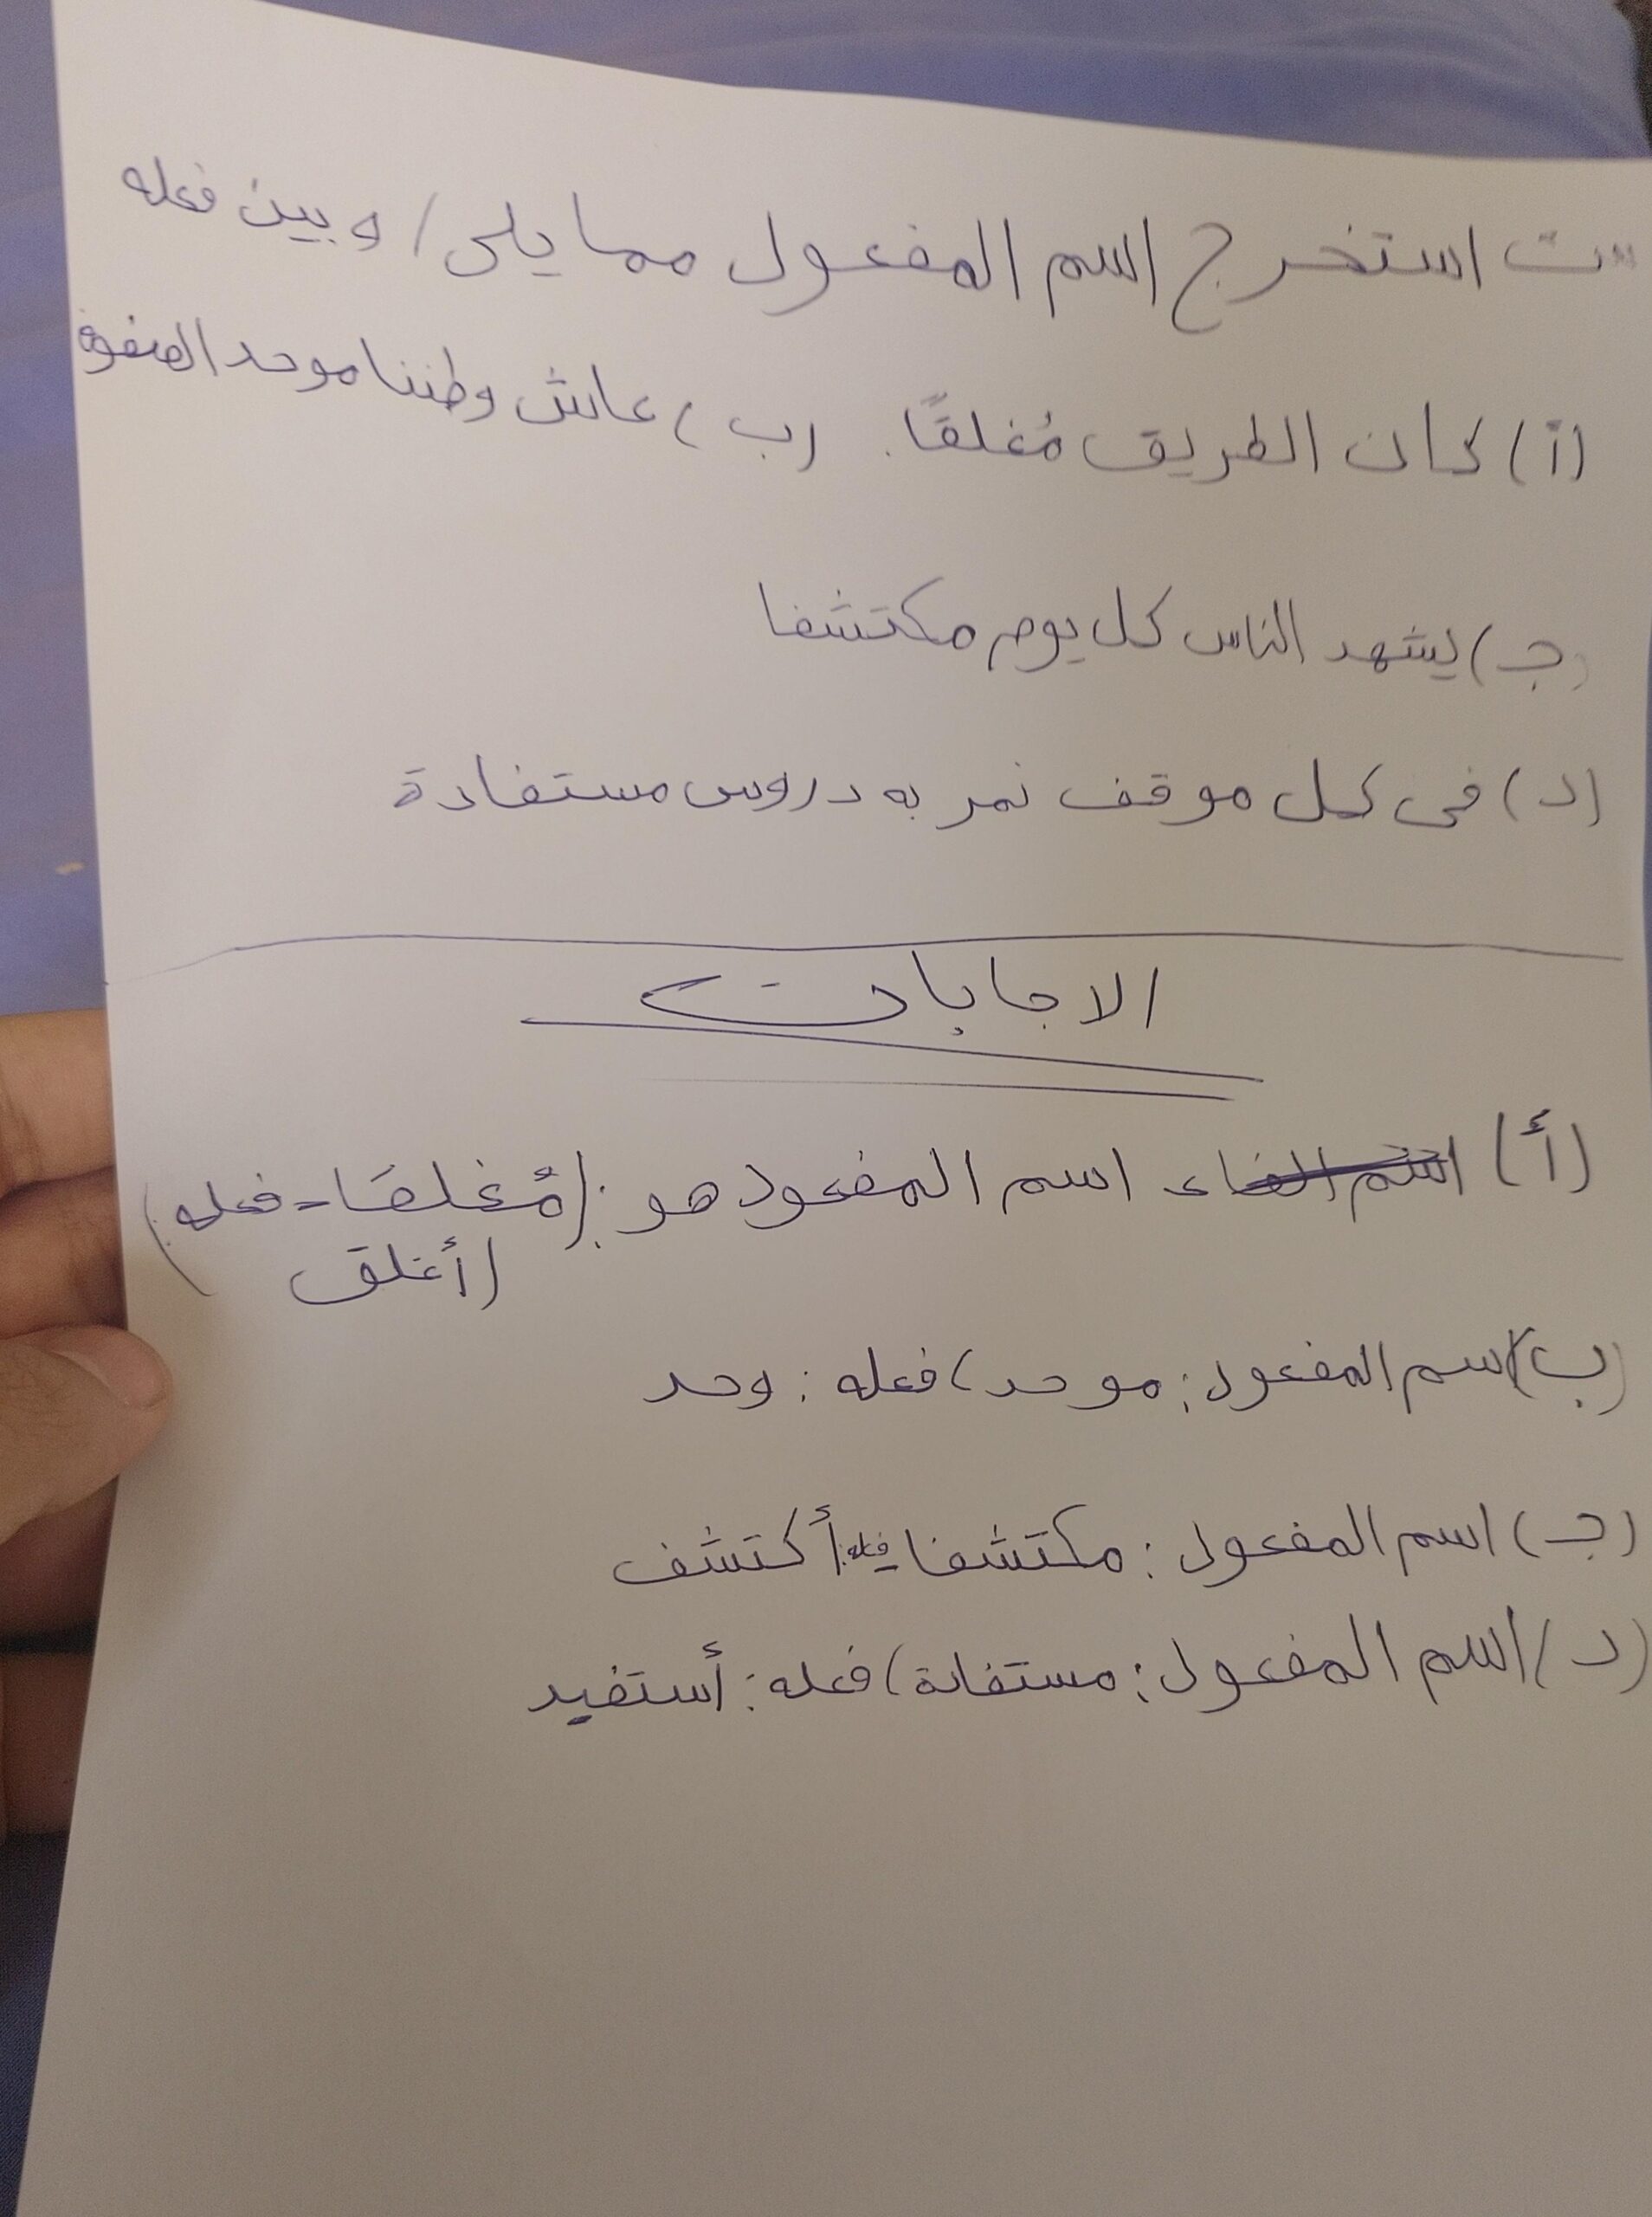 ت استخرج اسم المفعول مما يلى / وبين فعله
(أ) كان الطريق مُغلقًا. (ب) عاش وطننا موحد الصفوف
(جـ) يشهد الناس كل يوم مكتشفا
(د) فى كل موقف نمر به دروس مستفادة
الاجابات
(أ) اسم المفعول هو: (مُغلقَا - فعله)
(أغلق
(ب) اسم المفعول: موحد) فعله: وحد
(جـ) اسم المفعول: مكتشفا فعله: أكتشف
(د) اسم المفعول: مستفادة) فعله: أستفيد